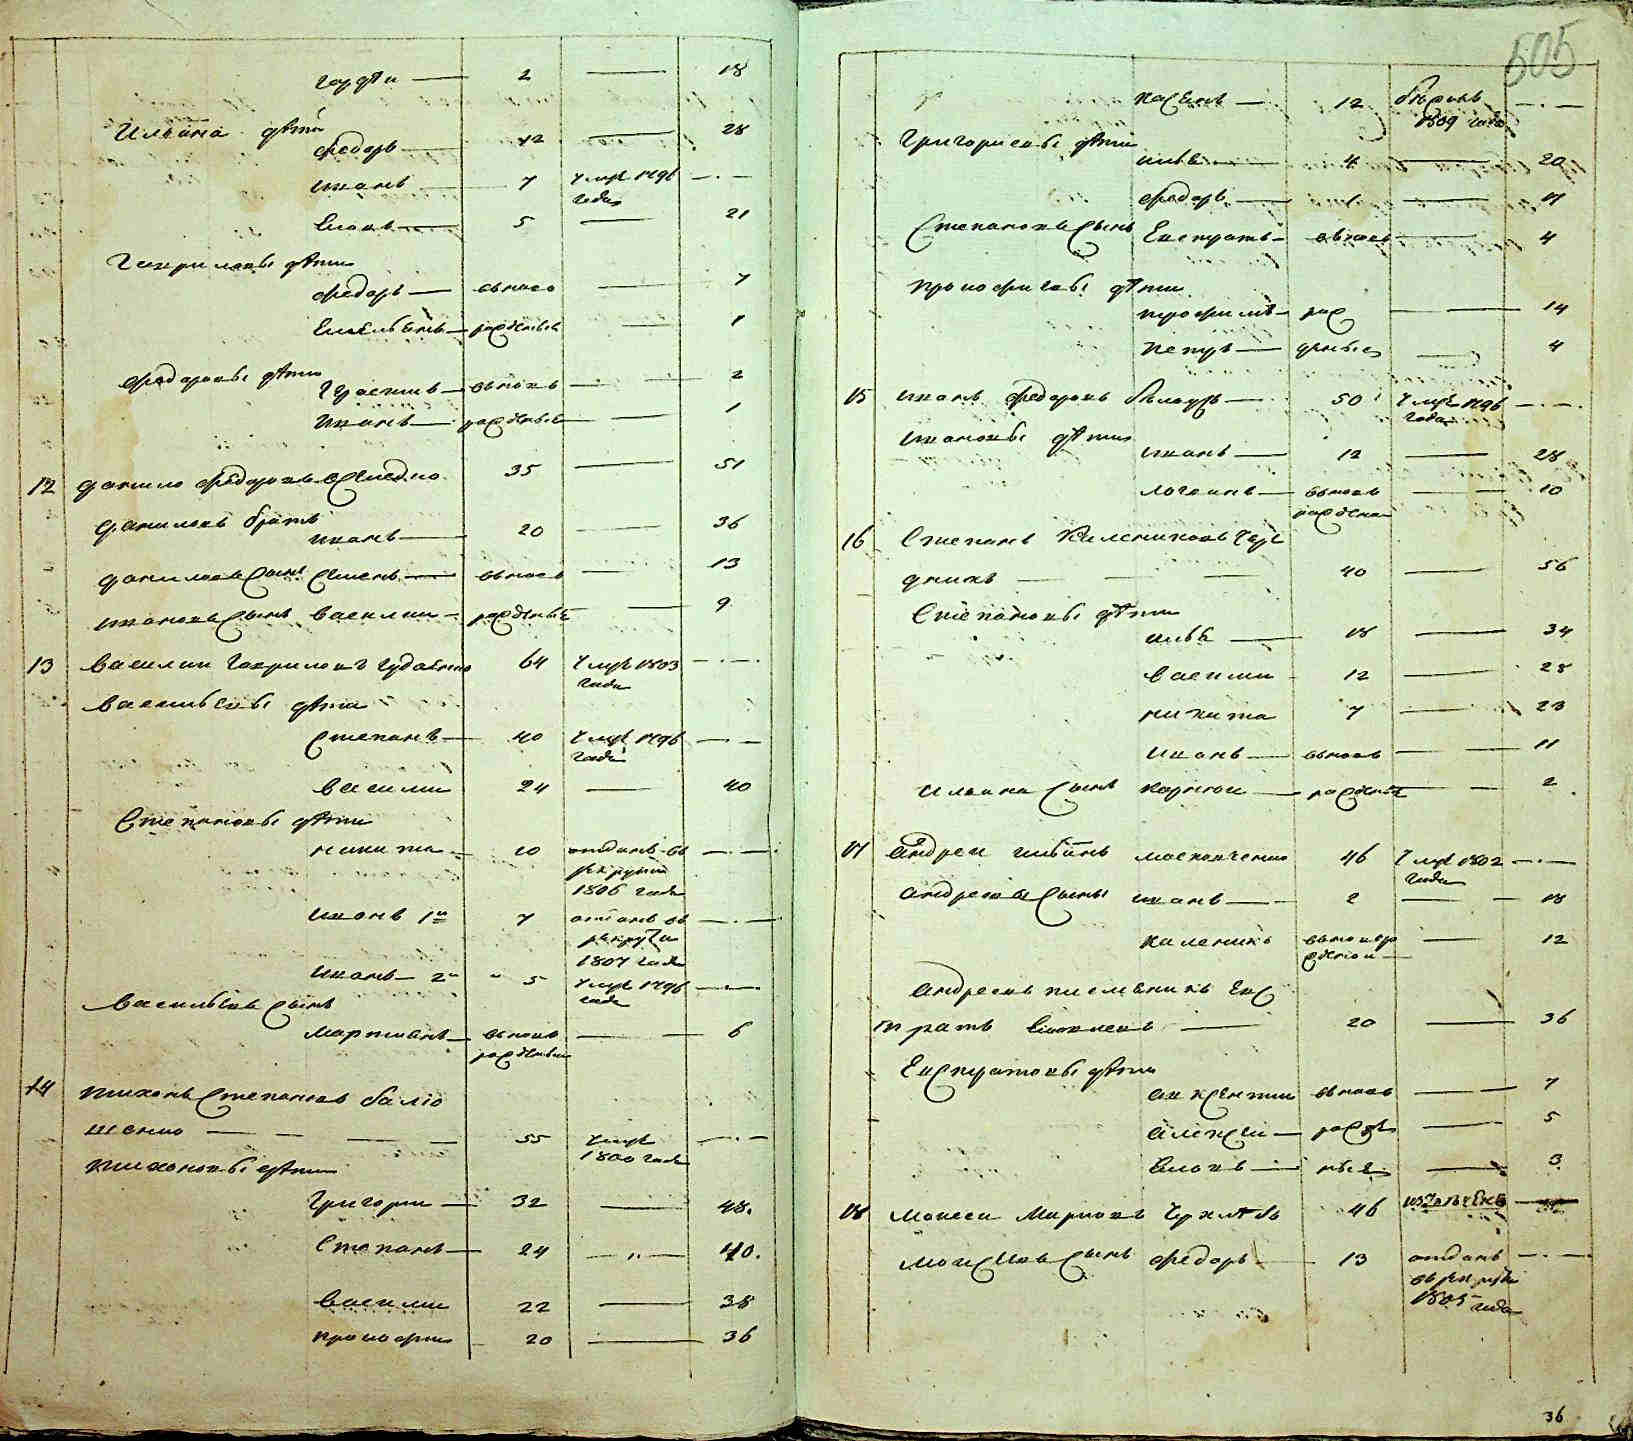 гордѣи — 2 — 18
Ильина дѣти
федоръ — 12 — 28
иванъ — 7 умре 1796 — . —
года
Яковъ — 5 — 21
Гавриловы дѣти
федоръ — вьново — 7
Емельянъ — рожденые — 1
федоровы дѣти
Герасимъ — вьновь — 2
Иванъ — рожденые — 1
12 данило федоровъ 35 — 51
даниловъ братъ
иванъ — 20 — 36
даниловъ сынъ Семенъ — вьновь — 13
ивановъ сынъ василии — рожденые — 9
13 василии гавриловъ 64 умре 1803 — . —
года
васильевы дѣти
степанъ — 40 умре 1796 — . —
года
василии 24 — 40
Степановы дѣти
никита — 10 отданъ въ — . —
рекруты
1806 года
иванъ 1й 7 отданъ въ — . —
рекруты
1807 года
иванъ — 2й 5 умре 1796 — . —
года
васильевъ сынъ
мартинъ — вьновь — 6
рожденыи
14 тихонъ степановъ бало
шенко — 55 умре — . —
1800 года
тихоновы дѣти
Григории — 32 — 48.
Степанъ — 24 — " — 40.
василии 22 — 38
прокофии 20 — 36
505
12 — . —
1809 года
Григориевы дѣти
илья — 4 — 20
федоръ — 1 — 17
Степановъ сынъ Евстратъ — вьновь — 4
прокофиевы дѣти
трофимъ — рож — 14
петръ — деные — 4
15 иванъ федоровъ — 50 умре 1796 — . —
года
ивановы дѣти
иванъ — 12 — 28
логвинъ — вьновь — 10
рожденъ
16 Степанъ Калениковъ Чере
дникъ — 40 — 56
Степановы дѣти
илья — 18 — 34
василии — 12 — 28
никита 7 — 23
иванъ — вьновь — 11
ильинъ сынъ корнеи — рожденые — 2
17 андреи ильинъ москаленко 46 умре 1802 — . —
года
андреевы сыны иванъ — 2 — 18
каленикъ вьновь ро — 12
жденои
андреевъ племеникъ Евс
тратъ Яковлевъ — 20 — 36
Евстратовы дѣти
авксентии вьновь — 7
алексеи — рожде — 5
Яковъ — ные — 3
18 моисеи марковъ 46
моисеевъ сынъ федоръ — 13 отданъ — . —
въ рекруты
1805 года
36